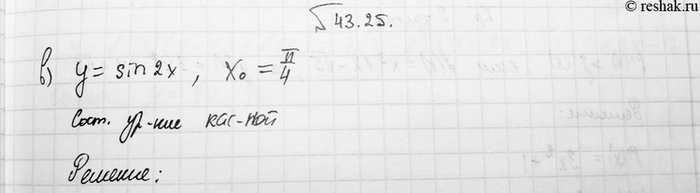 © reshak.ru
№ 43.25.
в) y = sin 2x , x₀ = π/4
Сост. ур-ние кас-ной
Решение: